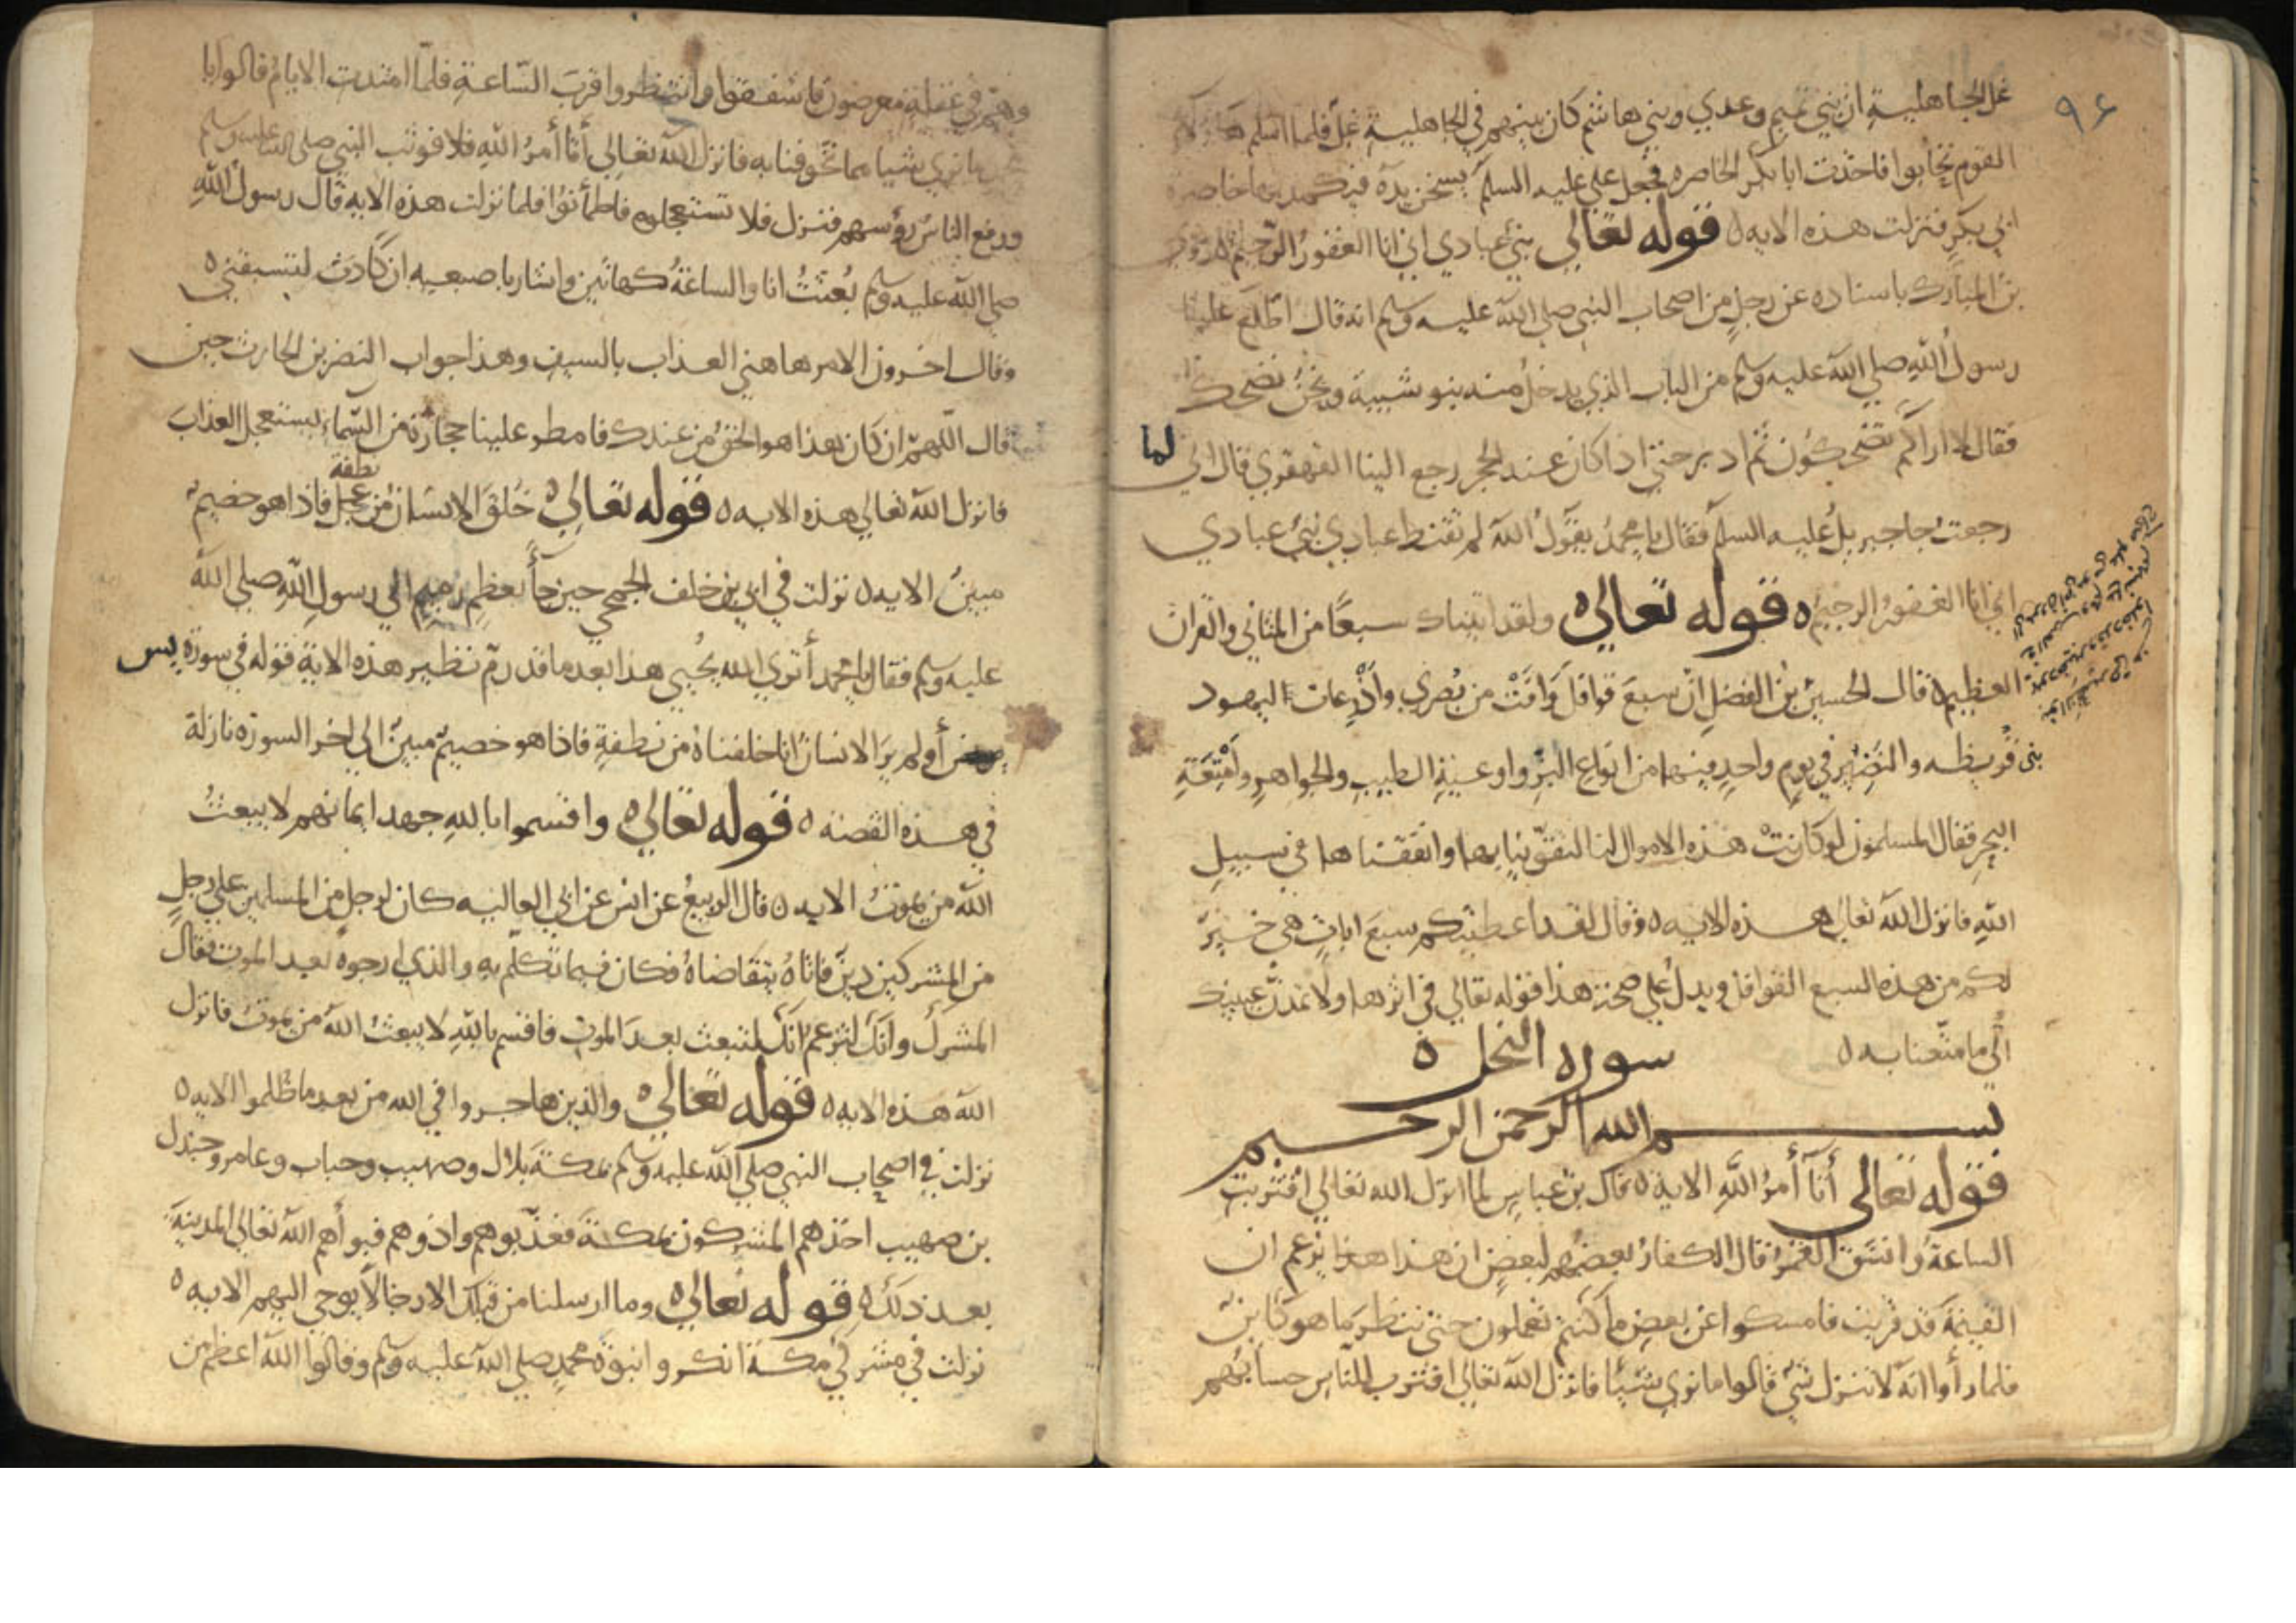 ٩٦
غل الجاهلية ان بني تميم وعدي وبني هاشم كان بينهم في الجاهلية غل فلما اسلم هاولاء
القوم تحابوا فاخذت ابا بكر الخاصره فجعل علي عليه السلم يسخن يده فيكمد بها خاصرة
ابي بكر فنزلت هذه الايه ٥ قوله تعالي نبئ عبادي اني انا الغفور الرحيم ٥ روي
بن المبارك باسناده عن رجل من اصحاب النبي صلي الله عليه وسلم انه قال اطلع علينا
رسول الله صلي الله عليه وسلم من الباب الذي يدخل منه بنو شيبة ونحن نضحك
فقال لا اراكم تضحكون ثم ادبر حتي اذا كان عند الحجر رجع الينا القهقري فقال اني لما
رجعت جا جبريل عليه السلم فقال يا محمد يقول الله لم تقنط عبادي نبئ عبادي
اني انا الغفور الرحيم ٥ قوله تعالي ٥ ولقد اتيناك سبعا من المثاني والقران
العظيم ٥ قال الحسين بن الفضل ان سبع قوافل وافت من بصري واذرعات اليهود
بني قريظه والنضير في يوم واحد فيها من انواع البز واوعية الطيب والجواهر وامتعة
البحر فقال المسلمون لو كانت هذه الاموال لنا لتقوينا بها وانفقناها في سبيل
الله فانزل الله تعالي هذه الايه ٥ وقال لقد اعطيتكم سبع ايات هي خير
لكم من هذه السبع القوافل ويدل علي صحة هذا قوله تعالي في اثرها ولا تمدن عينيك
الي ما متعنا به ٥
سوره النحل ٥
بسم الله الرحمن الرحيم
قوله تعالي أتا أمر الله الاية ٥ قال بن عباس لما انزل الله تعالي اقتربت
الساعة وانشق القمر قال الكفار بعضهم لبعض ان هذا يزعم ان
القيمة قد قربت فامسكوا عن بعض ما كنتم تعملون حتي ننظر ما هو كاين
فلما رأوا انه لا ينزل شي قالوا ما نري شيئا فانزل الله تعالي اقترب للناس حسابهم
وهم في غفلة معرضون فاشفقوا وانتظروا قرب الساعة فلما امتدت الايام قالوا يا
محمد ما نري شيا مما تخوفنا به فانزل الله تعالي أتا أمر الله فلا فوثب النبي صلي الله عليه وسلم
ورفع الناس رؤسهم فنزل فلا تستعجلوه فاطمأنوا فلما نزلت هذه الايه قال رسول الله
صلي الله عليه وسلم بعثت انا والساعة كهاتين واشار باصبعيه ان كادت لتسبقني ٥
وقال اخرون الامر هاهني العذاب بالسيف وهذا جواب النضر بن الحارث حين
قال اللهم ان كان هذا هو الحق من عندك فامطر علينا حجارة من السماء يستعجل العذاب
فانزل الله تعالي هذه الايه ٥ قوله تعالي ٥ خلق الانسان من عجل نطفة فاذا هو خصيم
مبين الايه ٥ نزلت في ابي بن خلف الجمحي حين جأ بعظم رميم الي رسول الله صلي الله
عليه وسلم فقال يا محمد أتري الله يحيي هذا بعد ما قد رم نظير هذه الاية قوله في سورة يس
أولم ير الانسان انا خلقناه من نطفة فاذا هو خصيم مبين الي اخر السورة نازلة
في هذه القصه ٥ قوله تعالي ٥ واقسموا بالله جهد ايمانهم لا يبعث
الله من يموت الايه ٥ قال الربيع عن انس عن ابي العاليه كان لرجل من المسلمين علي رجل
من المشركين دين فاتاه يتقاضاه فكان فيما تكلم به والذي ارجوه بعد الموت فقال
المشرك وانك لتزعم انك لتبعث بعد الموت فاقسم بالله لا يبعث الله من يموت فانزل
الله هذه الايه ٥ قوله تعالي ٥ والذين هاجروا في الله من بعد ما ظلموا الايه ٥
نزلت في اصحاب النبي صلي الله عليه وسلم بمكة بلال وصهيب وخباب وعامر وجندل
بن صهيب اخذهم المشركون بمكة فعذبوهم واذوهم فبوأهم الله تعالي المدينة
بعد ذلك ٥ قوله تعالي ٥ وما ارسلنا من قبلك الا رجالا يوحي اليهم الايه ٥
نزلت في مشركي مكة انكروا نبوة محمد صلي الله عليه وسلم وقالوا الله اعظم من